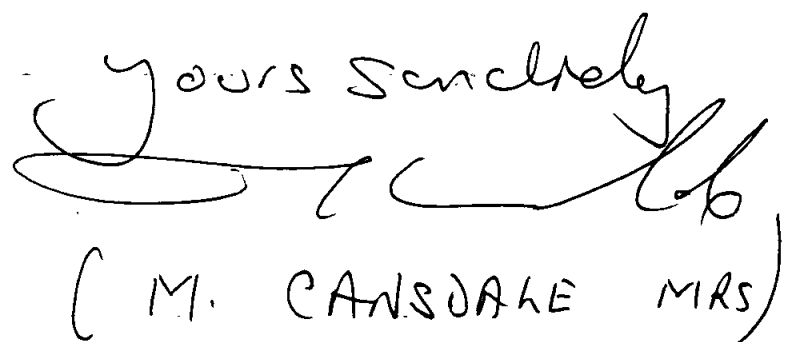 yours sincerely
( M. CANSDALE MRS)